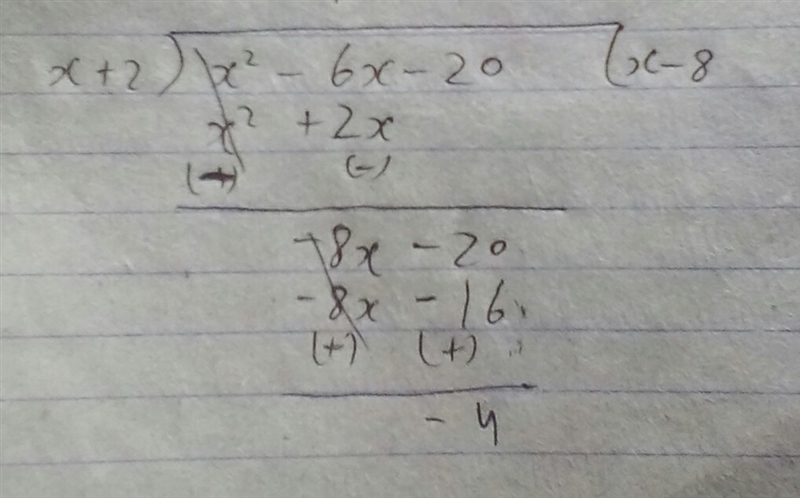 x+2)x² - 6x - 20 (x-8
x² + 2x
(-) (-)
-8x - 20
-8x - 16
(+) (+)
- 4